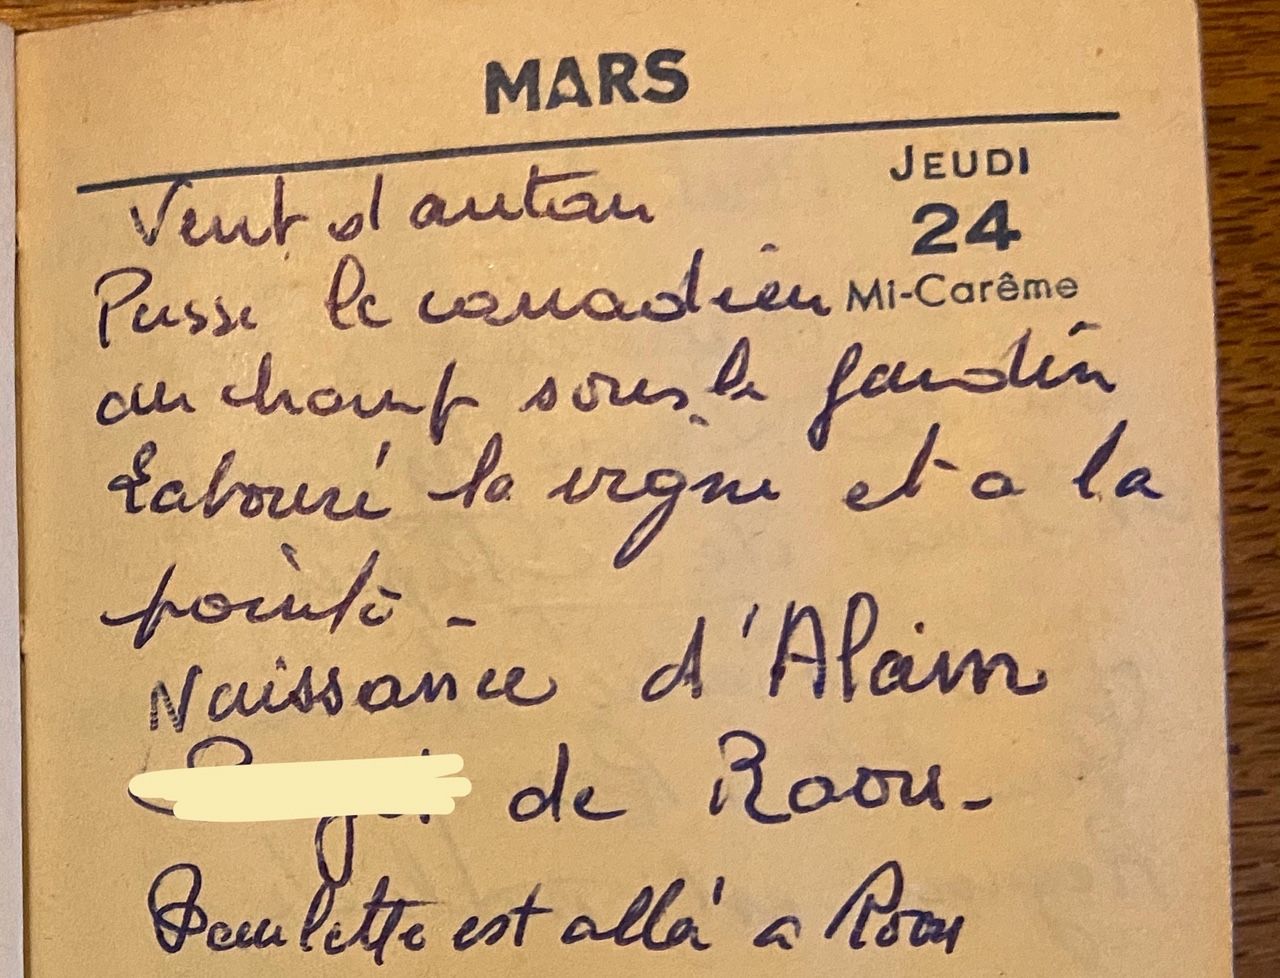 MARS
JEUDI
24
Mi-Carême
Vent d'autan
Passé le canadien
au champ sous le jardin
Labouré la vigne et a la
pointe -
Naissance d'Alain
de Raou -
Paulette est allé a Raou